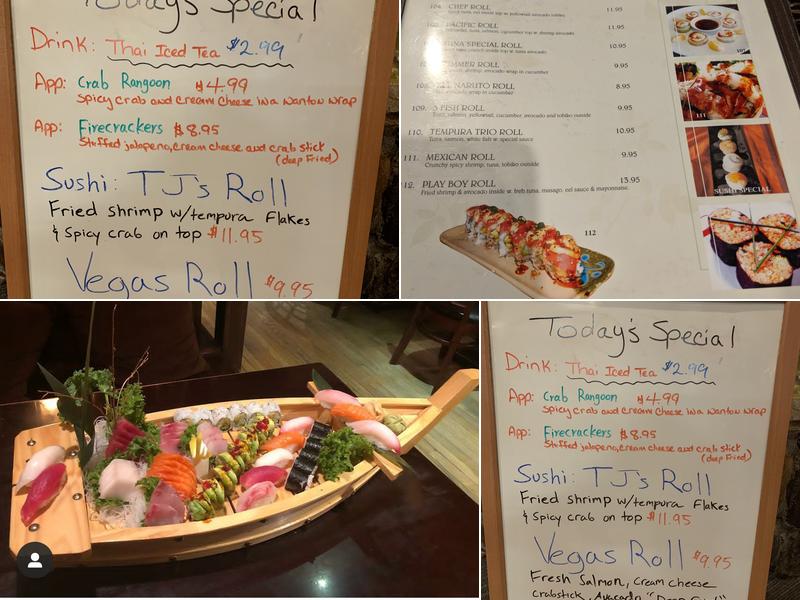 Today's Special
Drink: Thai Iced Tea $2.99
App: Crab Rangoon $4.99
Spicy crab and cream cheese in a wanton wrap
App: Firecrackers $8.95
Stuffed jalapeno, cream cheese and crab stick
(deep fried)
Sushi: TJ's Roll
Fried shrimp w/tempura flakes
& Spicy crab on top $11.95
Vegas Roll $9.95
104. CHEF ROLL 11.95
PACIFIC ROLL 11.95
SPECIAL ROLL 10.95
9.95
NARUTO ROLL 8.95
avocado wrap in cucumber
FISH ROLL 9.95
Tuna, salmon, yellowtail, cucumber, avocado and tobiko outside
110. TEMPURA TRIO ROLL 10.95
Tuna, salmon, white fish w. special sauce
111. MEXICAN ROLL 9.95
Crunchy spicy shrimp, tuna, tobiko outside
12. PLAY BOY ROLL 13.95
Fried shrimp & avocado inside w. fresh tuna, masago, eel sauce & mayonnaise.
112
111
SUSHI SPECIAL
Today's Special
Drink: Thai Iced Tea $2.99
App: Crab Rangoon $4.99
Spicy crab and cream cheese in a wanton wrap
App: Firecrackers $8.95
Stuffed jalapeno, cream cheese and crab stick
(deep fried)
Sushi: TJ's Roll
Fried shrimp w/tempura flakes
& Spicy crab on top $11.95
Vegas Roll $9.95
Fresh Salmon, cream cheese
crabstick, Avocado